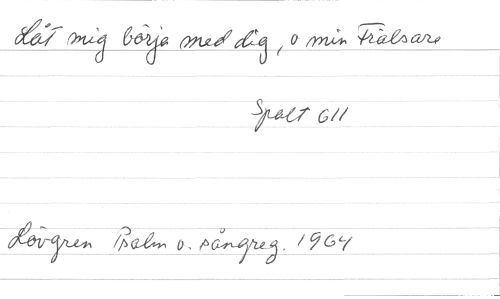 Låt mig börja med dig, o min Frälsare
Spalt 611
Lövgren Psalm o. sångreg. 1964